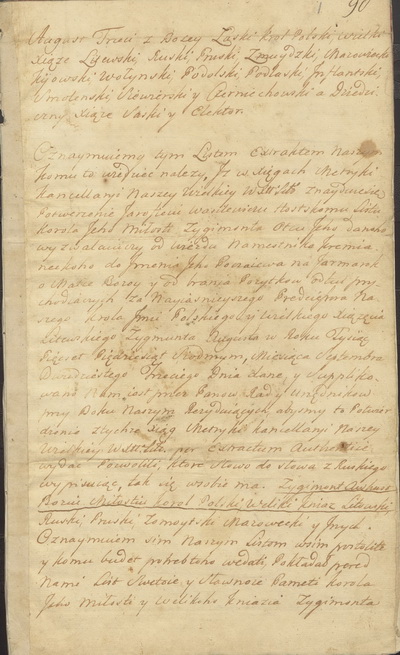 90
August Trzeci z Bozey Łaski Krol Polski, Wielki
Xiąze Litewski, Ruski, Pruski, Zmuydzki, Mazowiecki
Kijowski Wołynski, Podolski, Podlaski, Inflantski,
Smolenski, Siewierski y Czerniechowski a Dziedzi
czny Xiąze Saski y Elektor.
Oznaymuiemy tym Listem Extraktem Naszym
komu to wiedziec nalezy, Iz w Xięgach Metryki
Kancellaryi Naszey Wielkiey W. X. Litt. znayduie się
Potwerzenie
Korola Jeho Miłosti Zygimonta Otca Jeho danoho
od Uriadu Namestnika
do Jmenia Jeho na Jarmark
o Matce Bozey y od brania Pozytkow odtul pry
chodziaczych Za Nayiasnieyszego Predecessora Na
szego Krola Jmci Polskiego, y Wielkiego Xiązęcia
Litewskiego Zygmunta Augusta w Roku Tysiąc
Pięcset Piędziesiąt Siodmym, Miesiąca Septembra
Dwudziestego Trzeciego Dnia dane, y Suppliko
wano Nam iest przez Panow Rad y Urzędnikow
przy Boku Naszym Rezyduiących, abysmy to Potwier
dzenie z tychze Xiąg Metryki Kancellaryi Naszey
Wielkiey W. X. Litt. per Extractum Authentice
wydac Pozwolili, ktore słowo do słowa z Ruskiego
wypisuiąc, tak się w sobie ma. Zygimont Awhust
Bozju Miłostiu Korol Polski Weliki Kniaz Litowski
Ruski, Pruski, Zomoytski Mazowecki y Jnych.
Oznaymuiem sim Naszym Listom,
y komu budet potrebno wedati, Pokładał pered
Nami List Swetoie y Sławnoie Pameti Korola
Jeho Miłosti y Welikoho Kniazia Zygimonta